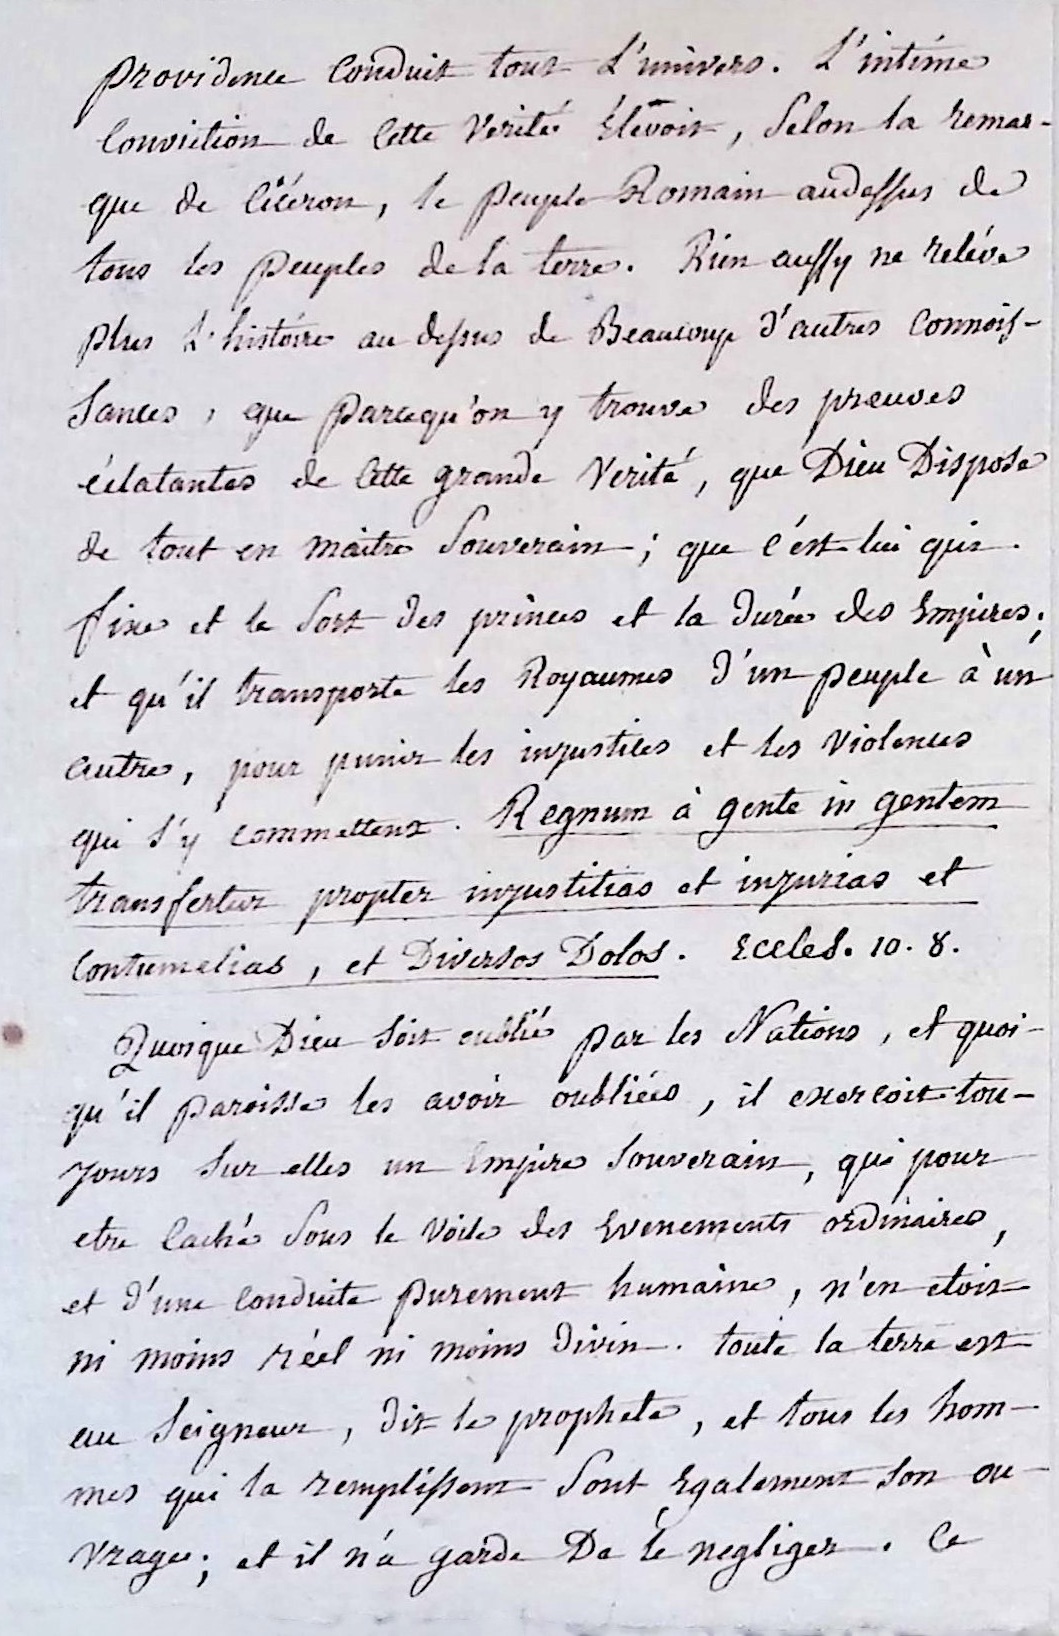 providence Conduit tout L'univers. L'intime
Conviction de Cette Verité Elevoit, Selon la remar-
que de Cicéron, le peuple Romain audessus de
tous les peuples de la terre. Rien aussy ne reléve
plus L'histoire au dessus de Beaucoup d'autres Connois-
Sances, que parcequ'on y trouve des preuves
éclatantes de Cette grande Verité, que Dieu Dispose
de tout en maitre Souverain; que c'est lui qui
fixe et le Sort des princes et la durée des Empires;
et qu'il transporte les Royaumes d'un peuple à un
autre, pour punir les injustices et les Violences
qui s'y commettent. Regnum à gente in gentem
transfertur propter injustitias et injurias et
Contumelias, et Diversos Dolos. Eccles. 10. 8.
Quoique Dieu Soit oublié par les Nations, et quoi-
qu'il paroisse les avoir oubliées, il exercoit tou-
jours Sur elles un Empire Souverain, qui pour
etre Caché Sous le Voile des Evenements ordinaires,
et d'une Conduite purement humaine, n'en etoit
ni moins réel ni moins divin. toute la terre est
au Seigneur, dit le prophete, et tous les hom-
mes qui la remplissent Sont Egalement Son ou-
vrage; et il n'a garde De le negliger. Ce